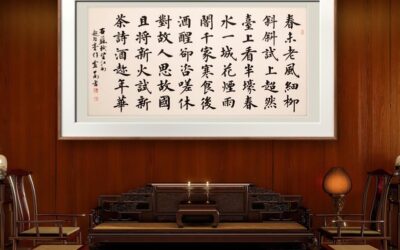 春未老風細柳
斜斜試上超然
臺上看半壕春
水一城花煙雨
闇千家寒食後
酒醒卻咨嗟休
對故人思故國
且將新火試新
茶詩酒趁年華
右蘇軾望江南